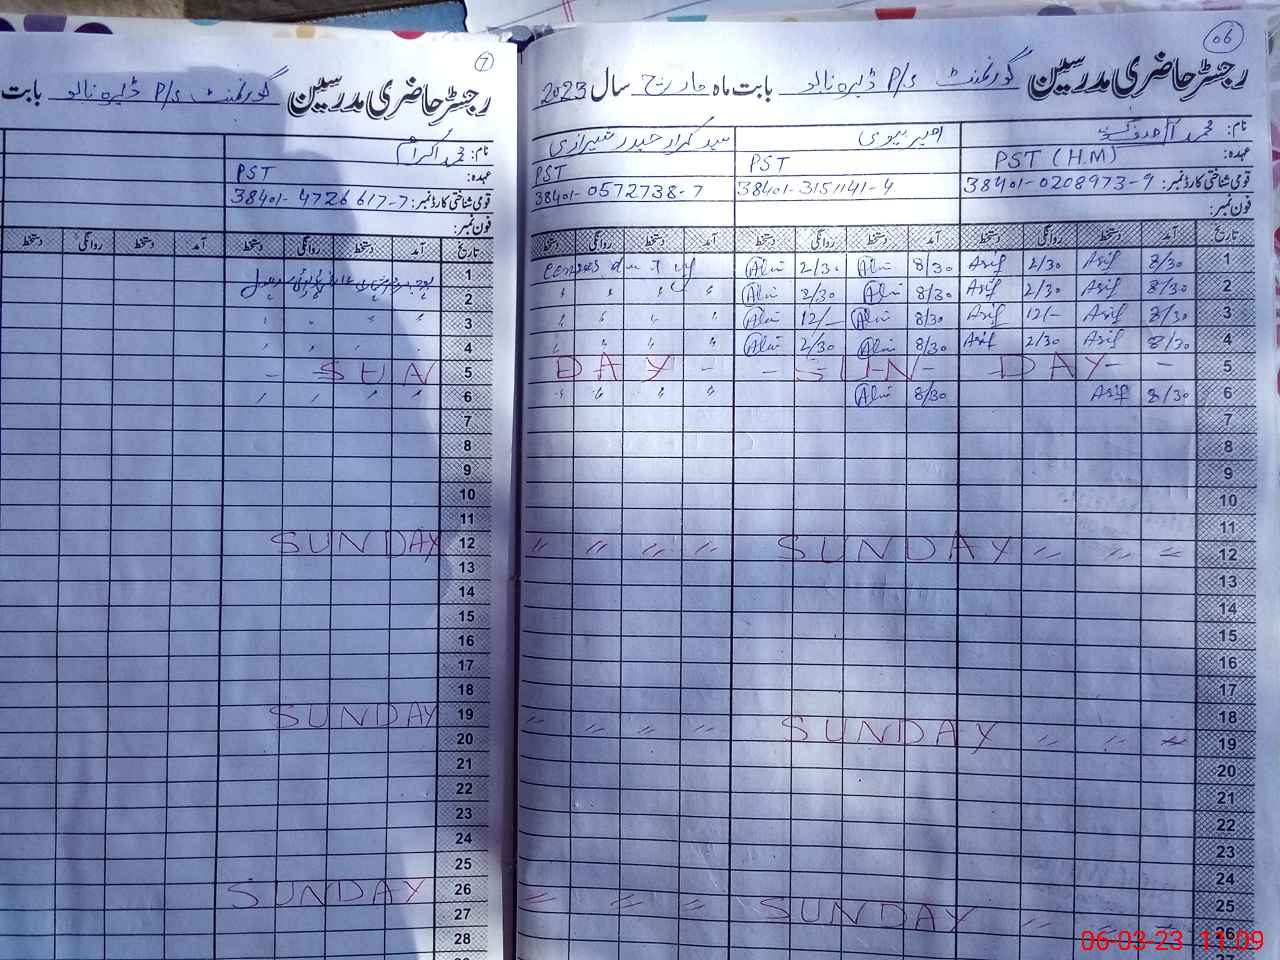 06
رجسٹر حاضری مدرسین گورنمنٹ P/S ڈیرہ نالو بابت ماہ مارچ سال 2023
نام: محمد آصف امیر بیوی سید کرار حیدر شیرازی
عہدہ: PST (H.M) PST PST
قومی شناختی کارڈ نمبر: 38401-0208973-9 38401-3151141-4 38401-0572738-7
فون نمبر:
تاریخ آمد دستخط روانگی دستخط آمد دستخط روانگی دستخط آمد دستخط روانگی دستخط
1 8/30 Asif 2/30 Asif 8/30 2/30 duty
2 8/30 Asif 2/30 Asif 8/30 2/30 " " " "
3 8/30 Asif 12/- Asif 8/30 12/- " " " "
4 8/30 Asif 2/30 Asif 8/30 2/30 " " " "
5 - - SUN DAY - - - SUN DAY -
6 8/30 Asif 8/30 " " " "
7
8
9
10
11
12 SUNDAY " " " " " " "
13
14
15
16
17
18
19 SUNDAY " " " " " " "
20
21
22
23
24
25 SUNDAY " " " " "
26
27
7
رجسٹر حاضری مدرسین گورنمنٹ P/S ڈیرہ نالو بابت
نام: محمد اکرام
عہدہ: PST
قومی شناختی کارڈ نمبر: 38401-4726617-7
فون نمبر:
تاریخ آمد دستخط روانگی دستخط آمد دستخط روانگی دستخط
1
2
3 " " " "
4 " " " "
5 SUN -
6 " " " "
7
8
9
10
11
12 SUNDAY
13
14
15
16
17
18
19 SUNDAY
20
21
22
23
24
25
26 SUNDAY
27
28
06-03-23 11:09